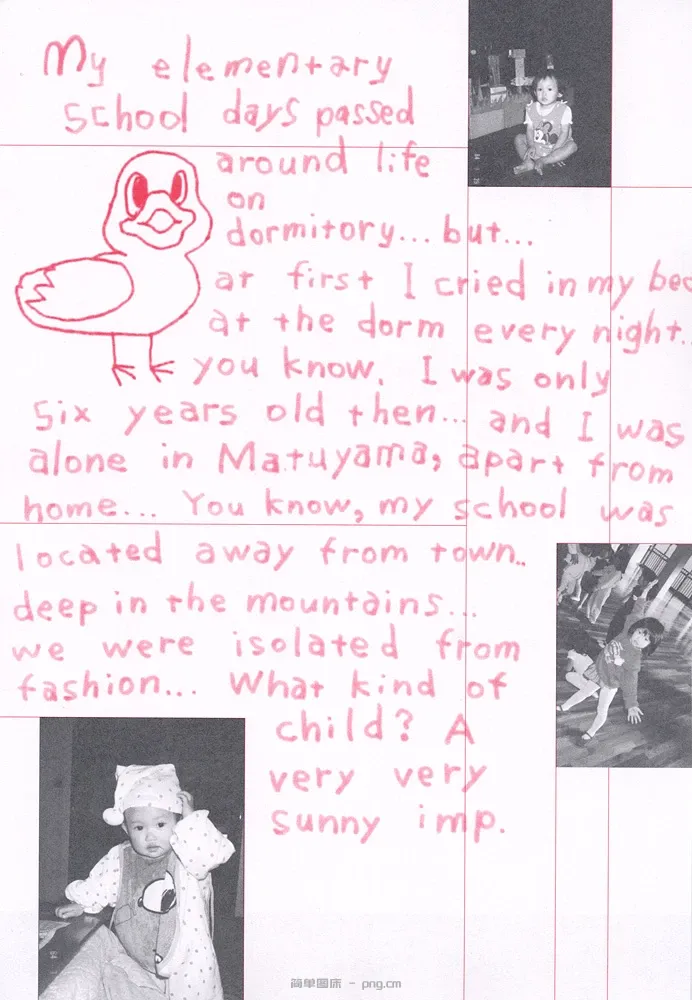 My elementary
school days passed
around life
on
dormitory... but...
at first I cried in my bed
at the dorm every night..
you know. I was only
six years old then... and I was
alone in Matuyama, apart from
home... You know, my school was
located away from town..
deep in the mountains...
we were isolated from
fashion... What kind of
child? A
very very
sunny imp.
简单图床 - png.cm